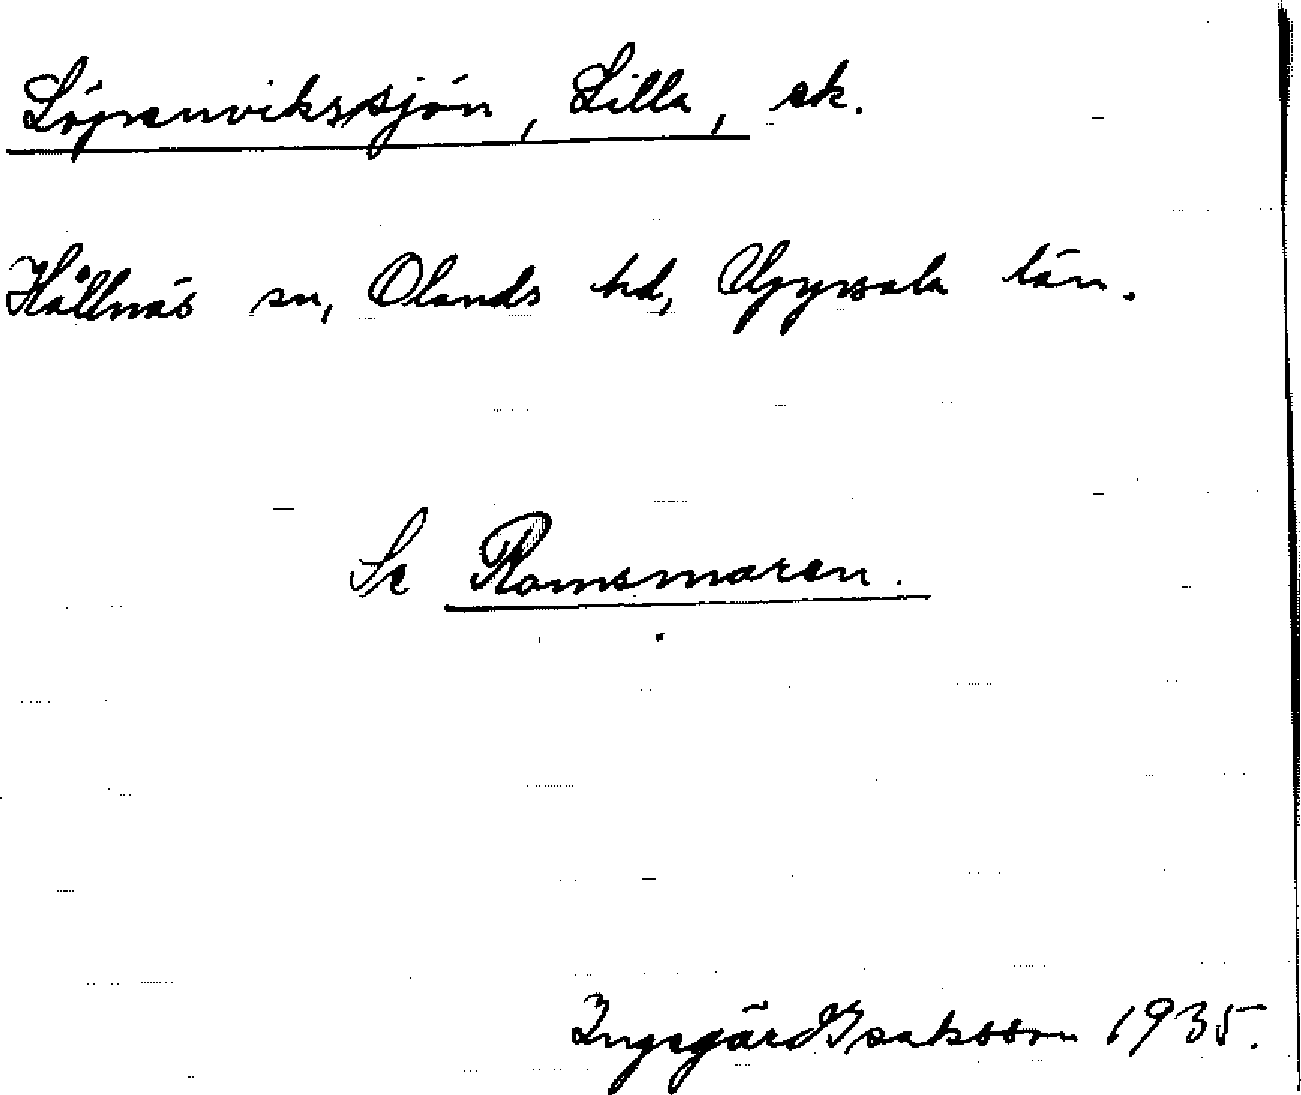 Löpanvikssjön, Lilla, ek.
Hållnäs sn, Olands hd, Uppsala län.
Se Romsmaren.
Ingegärd Isaksson 1935.